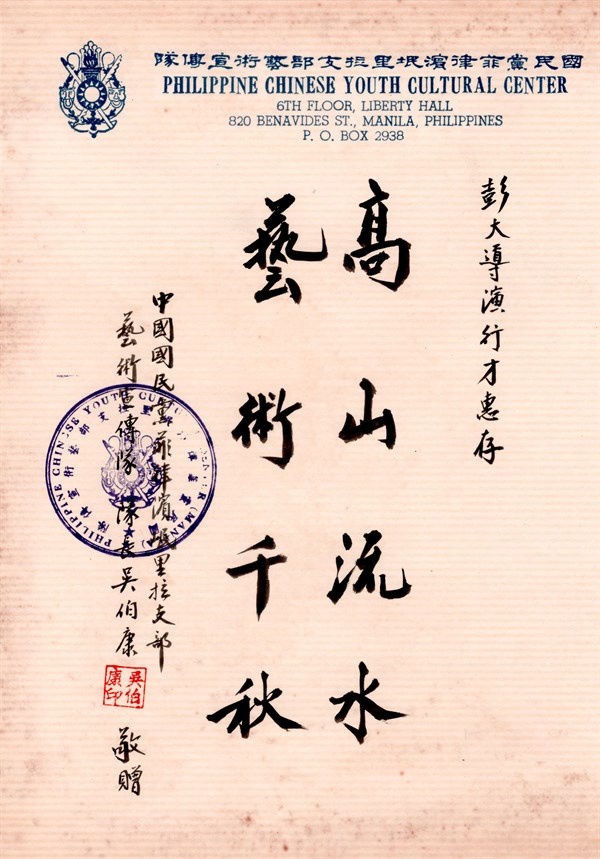 國民黨菲律濱岷里拉支部藝術宣傳隊
PHILIPPINE CHINESE YOUTH CULTURAL CENTER
6TH FLOOR, LIBERTY HALL
820 BENAVIDES ST., MANILA, PHILIPPINES
P. O. BOX 2938
彭大導演行才惠存
高山流水
藝術千秋
中國國民黨菲律濱岷里拉支部
藝術宣傳隊 隊長吳伯康 敬贈
吳伯康印
PHILIPPINE CHINESE YOUTH